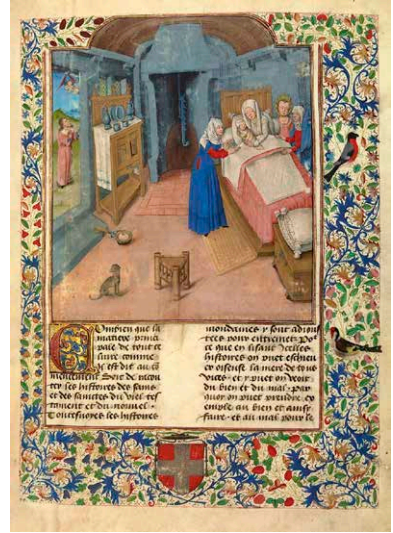 Ombien que la
matiere princi
pale de tout ce
liure comme
Je est dit au co
mencement Soit de racon
ter les histoires des sains
et des sainctes du viel tes
tament et du nouuel
touteffoyes les histoires
mondaines y sont adiou
tees pour entremetz Pour
ce que en lisant Icelles
histoires on puet escheuer
oiseuse la mere de tous
vices et y puet on veoir
du bien et du mal pour
quoy on puet prendre ex
emple au bien et ainsi
faire et au mal pour le